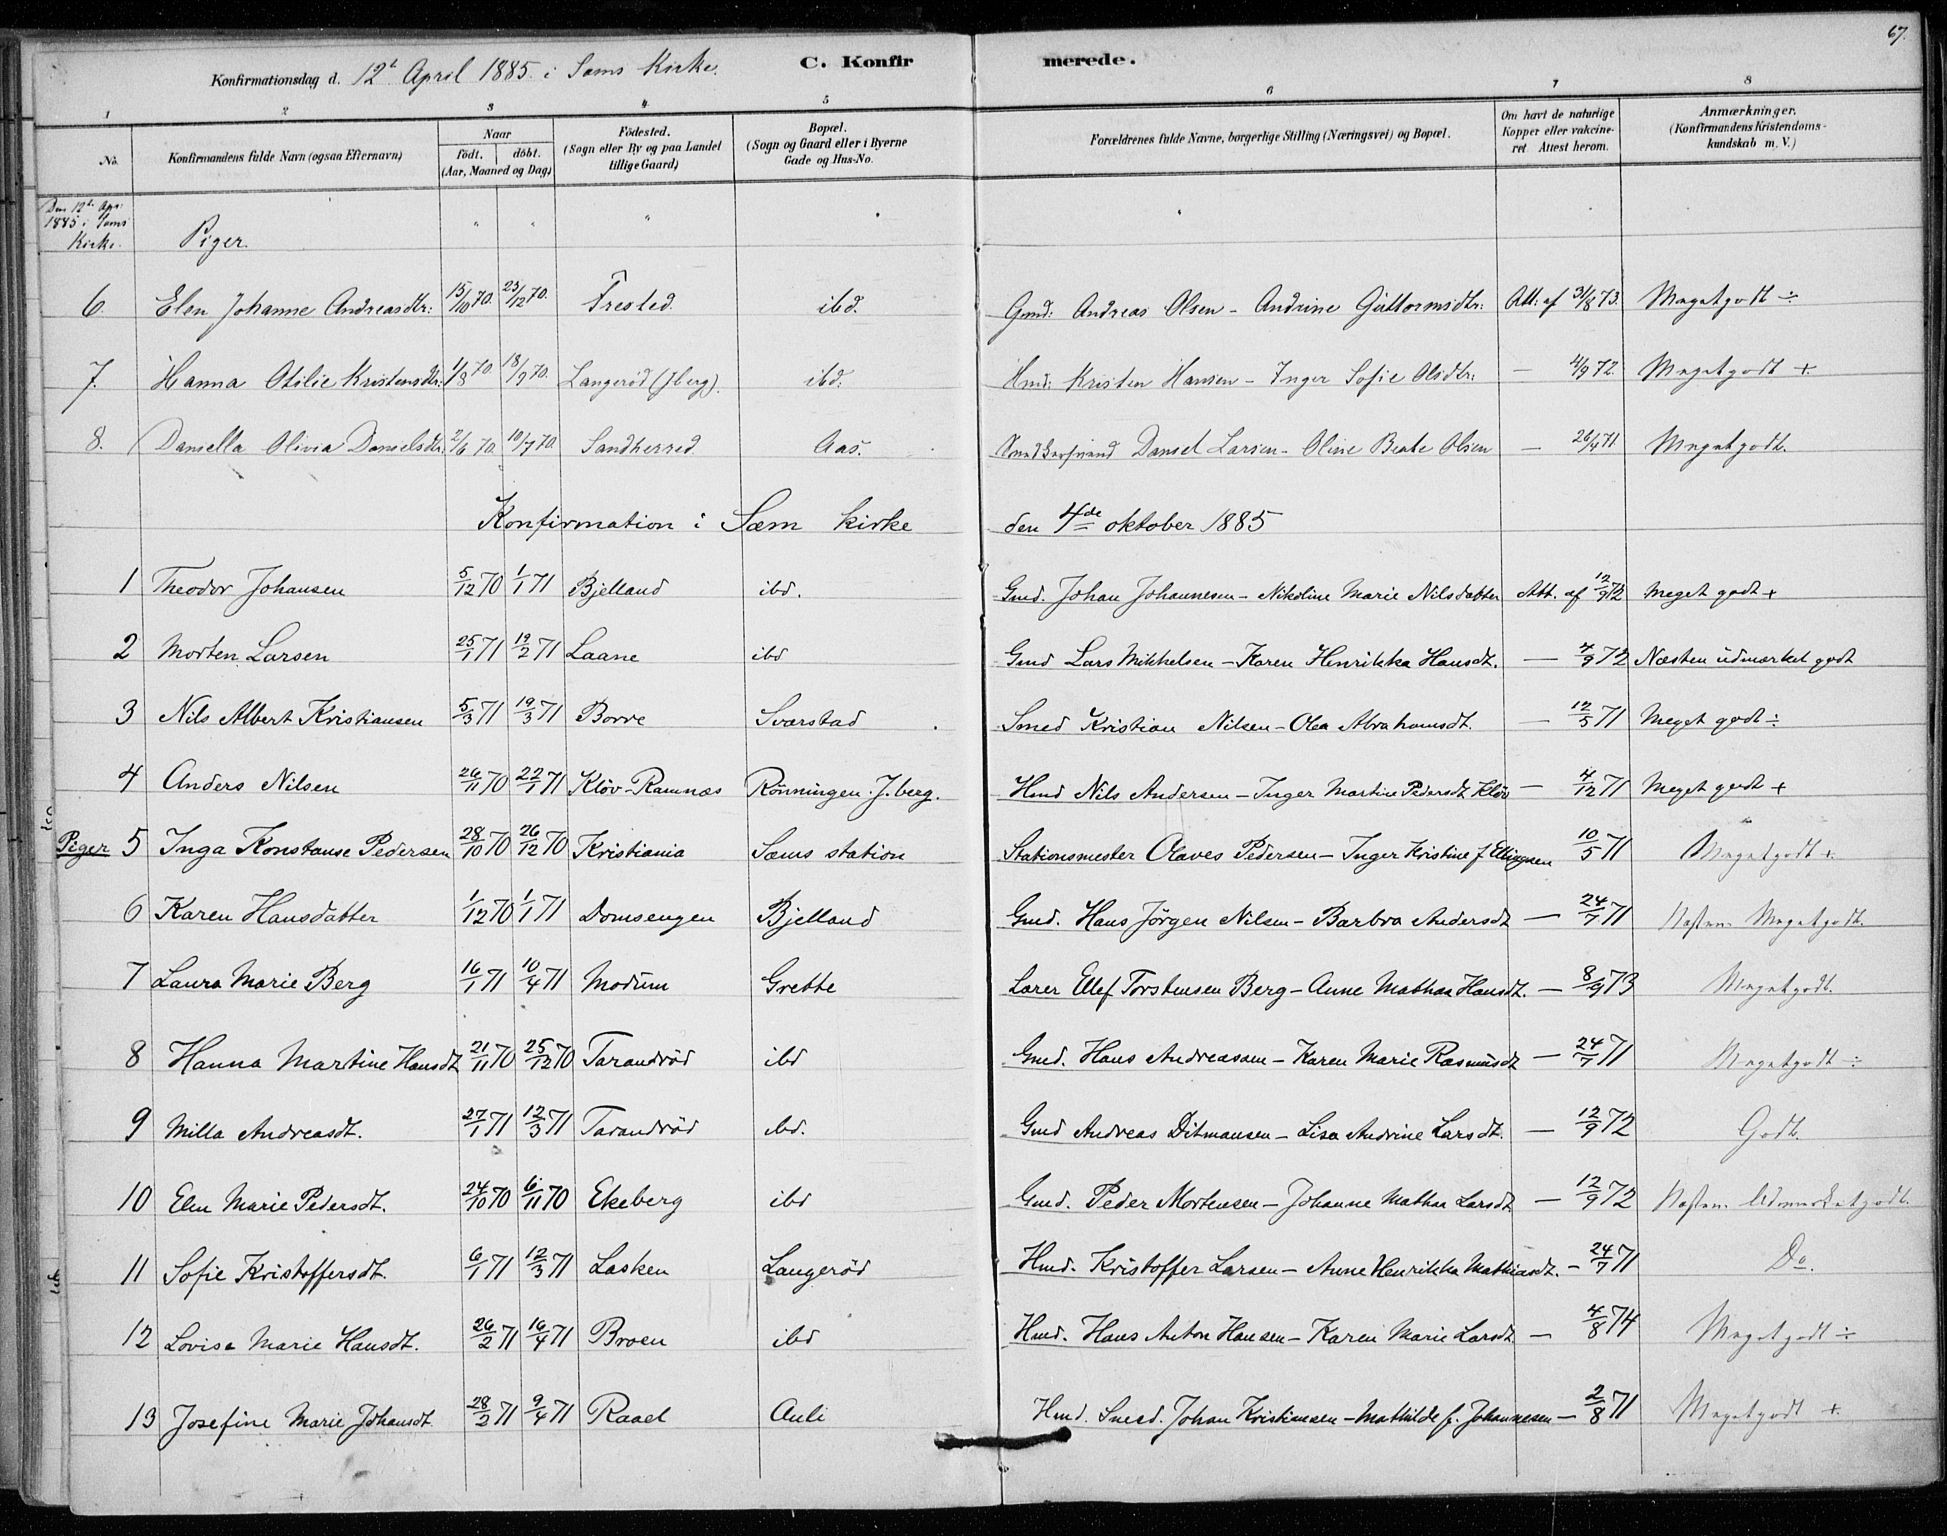 67.
Konfirmationsdag d. 12t April 1885 i Sems Kirke. C. Konfirmerede.
1 2 3 4 5 6 7 8
No. Konfirmandens fulde Navn (ogsaa Efternavn) Naar födt. döbt. (Aar, Maaned og Dag) Födested. (Sogn eller By og paa Landet tillige Gaard) Bopæl. (Sogn og Gaard eller i Byerne Gade og Hus-No. Forældrenes fulde Navne, borgerlige Stilling (Næringsvei) og Bopæl. Om havt de naturlige Kopper eller vakcineret Attest herom. Anmærkninger. (Konfirmandens Kristendomskundskab m. V.)
Den 12te Apr: 1885 i Sems Kirke. Piger.
6. Elen Johanne Andreasdtr: 15/10 70. 23/12 70. Frested. ibd. Gmd: Andreas Olsen - Andrine Guttormsdtr: Att: af 31/8 73. Megetgodt ÷
7. Hanna Otilie Kristensdtr: 1/8 70 18/9 70. Langerød (Jberg). ibd. Hmd: Kristen Hansen - Inger Sofie Olsdtr: — 4/9 72. Megetgodt +
8. Daniella Olivia Danielsdtr: 2/6 70. 10/7 70. Sandherred. Aas. Daniel Larsen - Oline Beate Olsen — 26/4 71 Megetgodt.
Konfirmation i Sæm kirke den 4de oktober 1885
1 Theodor Johansen 5/12 70 1/1 71 Bjelland ibd. Gmd. Johan Johannesen - Nikoline Marie Nilsdatter Att. af 12/9 72 Meget godt +
2 Morten Larsen 25/1 71 19/2 71 Laane ibd Gmd Lars Mikkelsen - Karen Henrikka Hansdt. — 4/9 72 Næsten udmærket godt
3 Nils Albert Kristiansen 5/3 71 19/3 71 Borre Svarstad Smed Kristian Nilsen - Olea Abrahamsdt. — 12/5 71 Meget godt ÷
4 Anders Nilsen 26/11 70 22/1 71 Kløv-Ramnæs Rønningen J.berg. Hmd Nils Andersen - Inger Martine Pedersdt Kløv — 4/12 71 Meget godt +
Piger 5 Inga Konstanse Pedersen 28/10 70 26/12 70 Kristiania Sæms station Stationsmester Olaves Pedersen - Inger Kristine f. Ellingsen 10/5 71 Megetgodt +
6 Karen Hansdatter 1/12 70 1/1 71 Domsengen Bjelland Gmd. Hans Jörgen Nilsen - Barbra Andersdt — 24/7 71 Næsten Megetgodt.
7 Laura Marie Berg 16/1 71 10/4 71 Modum Grette Lærer Ellef Torstensen Berg - Anne Mathea Hansdt. — 8/9 73 Megetgodt.
8 Hanna Martine Hansdt 21/11 70 25/12 70 Tarandrød ibd Gmd. Hans Andreassen - Karen Marie Rasmusdt — 24/7 71 Megetgodt ÷
9 Milla Andreasdt. 27/1 71 12/3 71 Tarandrød ibd. Gmd Andreas Ditmansen - Lisa Andrine Larsdt. — 12/9 72 Godt.
10 Elen Marie Pedersdt. 24/10 70 6/11 70 Ekeberg ibd Gmd. Peder Mortensen - Johanne Mathea Larsdt — 12/9 72 Næsten Udmærketgodt.
11 Sofie Kristoffersdt. 6/1 71 12/3 71 Lasken Langerød Hmd. Kristoffer Larsen - Anne Henrikka Mathiasdt. - 24/7 71 Do.
12 Lovise Marie Hansdt. 26/2 71 16/4 71 Broen ibd Hmd. Hans Anton Hansen - Karen Marie Larsdt — 4/8 74 Megetgodt ÷
13 Josefine Marie Johansdt. 28/2 71 9/4 71 Raael Auli Hmd. Smed. Johan Kristiansen - Mathilde f. Johannesen — 2/8 71 Megetgodt +